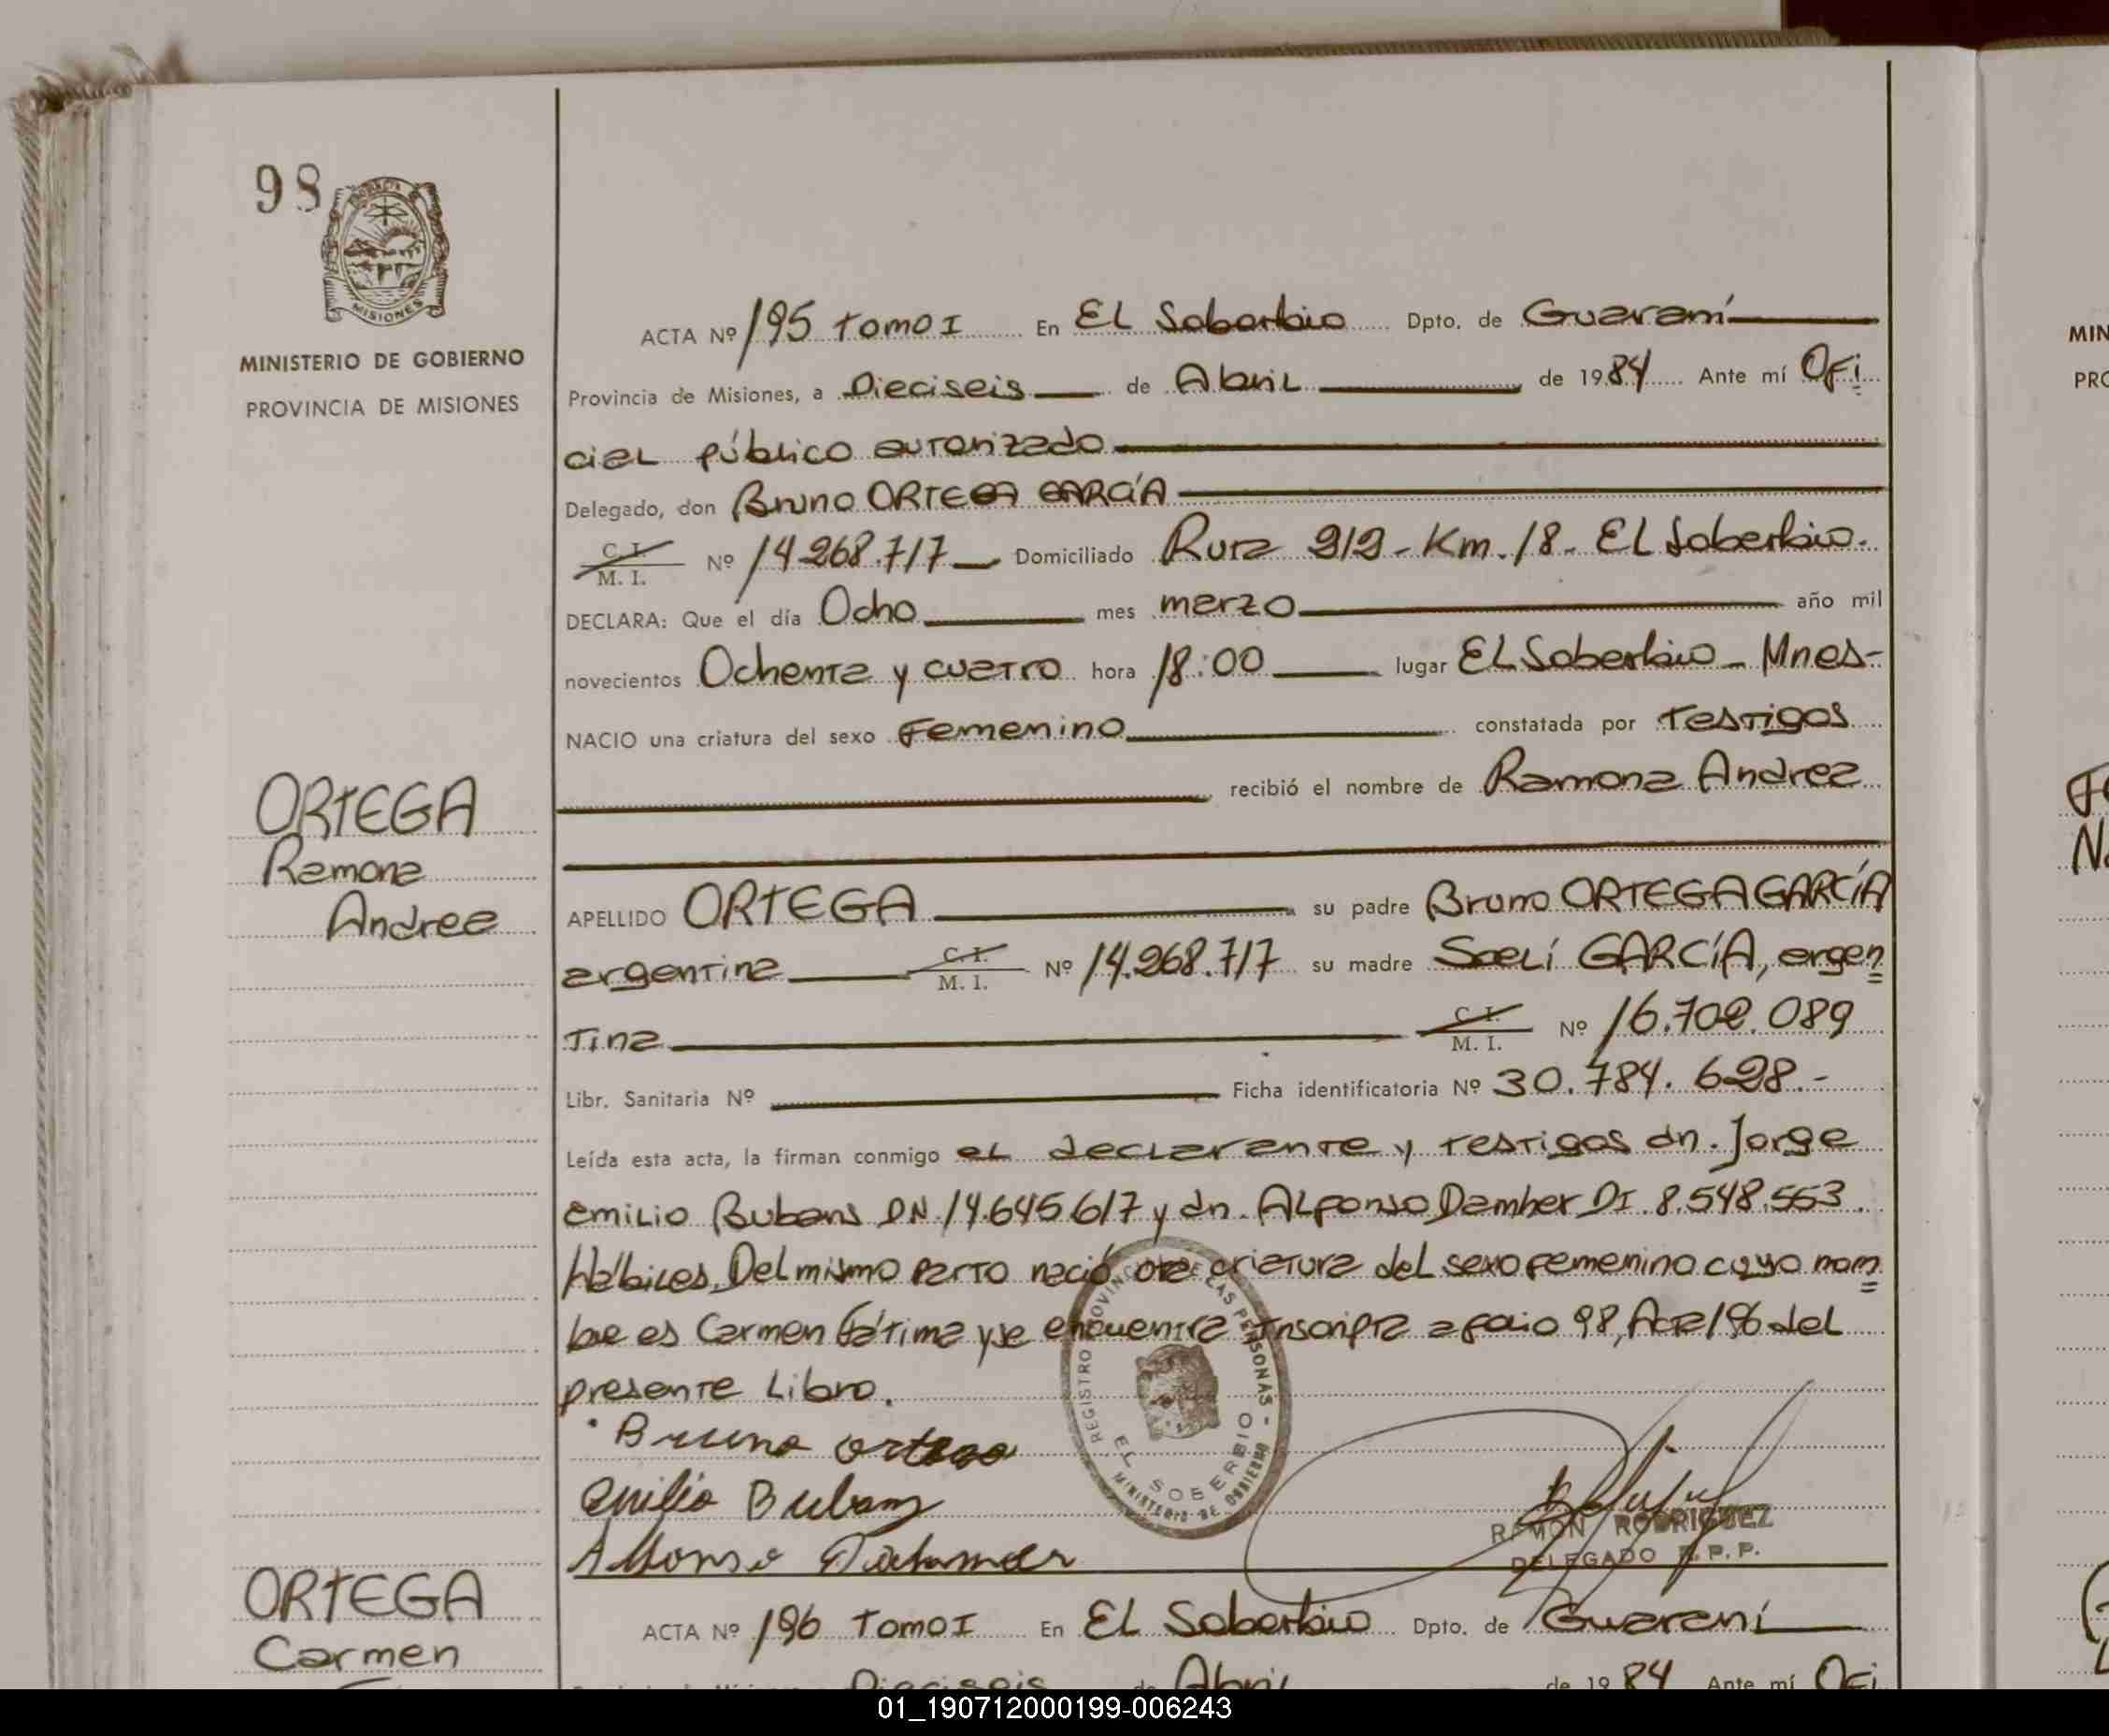 98
PROVINCIA
MISIONES
MINISTERIO DE GOBIERNO
PROVINCIA DE MISIONES
ACTA Nº 195 Tomo I En EL Soberbio Dpto. de Guaraní
Provincia de Misiones, a Dieciseis de Abril de 1984 Ante mí Ofi
cial público autorizado
Delegado, don Bruno ORTEGA GARCÍA
C. I. M. I. Nº 14.268.717 Domiciliado Ruta 212 - Km. 18 - EL Soberbio.
DECLARA: Que el día Ocho mes marzo año mil
novecientos Ochenta y cuatro hora 18:00 lugar EL Soberbio - Mnes-
NACIO una criatura del sexo Femenino constatada por testigos
recibió el nombre de Ramona Andrea
ORTEGA
Ramona
Andrea
APELLIDO ORTEGA su padre Bruno ORTEGA GARCÍA
argentina C. I. M. I. Nº 14.268.717 su madre Soelí GARCÍA, argen
tina C. I. M. I. Nº 16.702.089
Libr. Sanitaria Nº Ficha identificatoria Nº 30.784.628.-
Leída esta acta, la firman conmigo el declarante y testigos dn. Jorge
Emilio Bubans DN. 14.645.617 y dn. Alfonso Damher DI 8.548.553.
Hábiles. Del mismo parto nació otra criatura del sexo femenino cuyo nom
bre es Carmen Fátima y se encuentra Inscripta a folio 98, Acta 196 del
presente Libro.
REGISTRO PROVINCIAL DE LAS PERSONAS - MINISTERIO DE GOBIERNO
EL SOBERBIO
Bruno Ortega
Emilio Bubans
RAMON RODRIGUEZ
DELEGADO R. P. P.
ORTEGA
Carmen
ACTA Nº 196 Tomo I En EL Soberbio Dpto. de Guaraní
Dieciseis de Abril de 1984 Ante mí Ofi
MIN
PRO
01_190712000199-006243